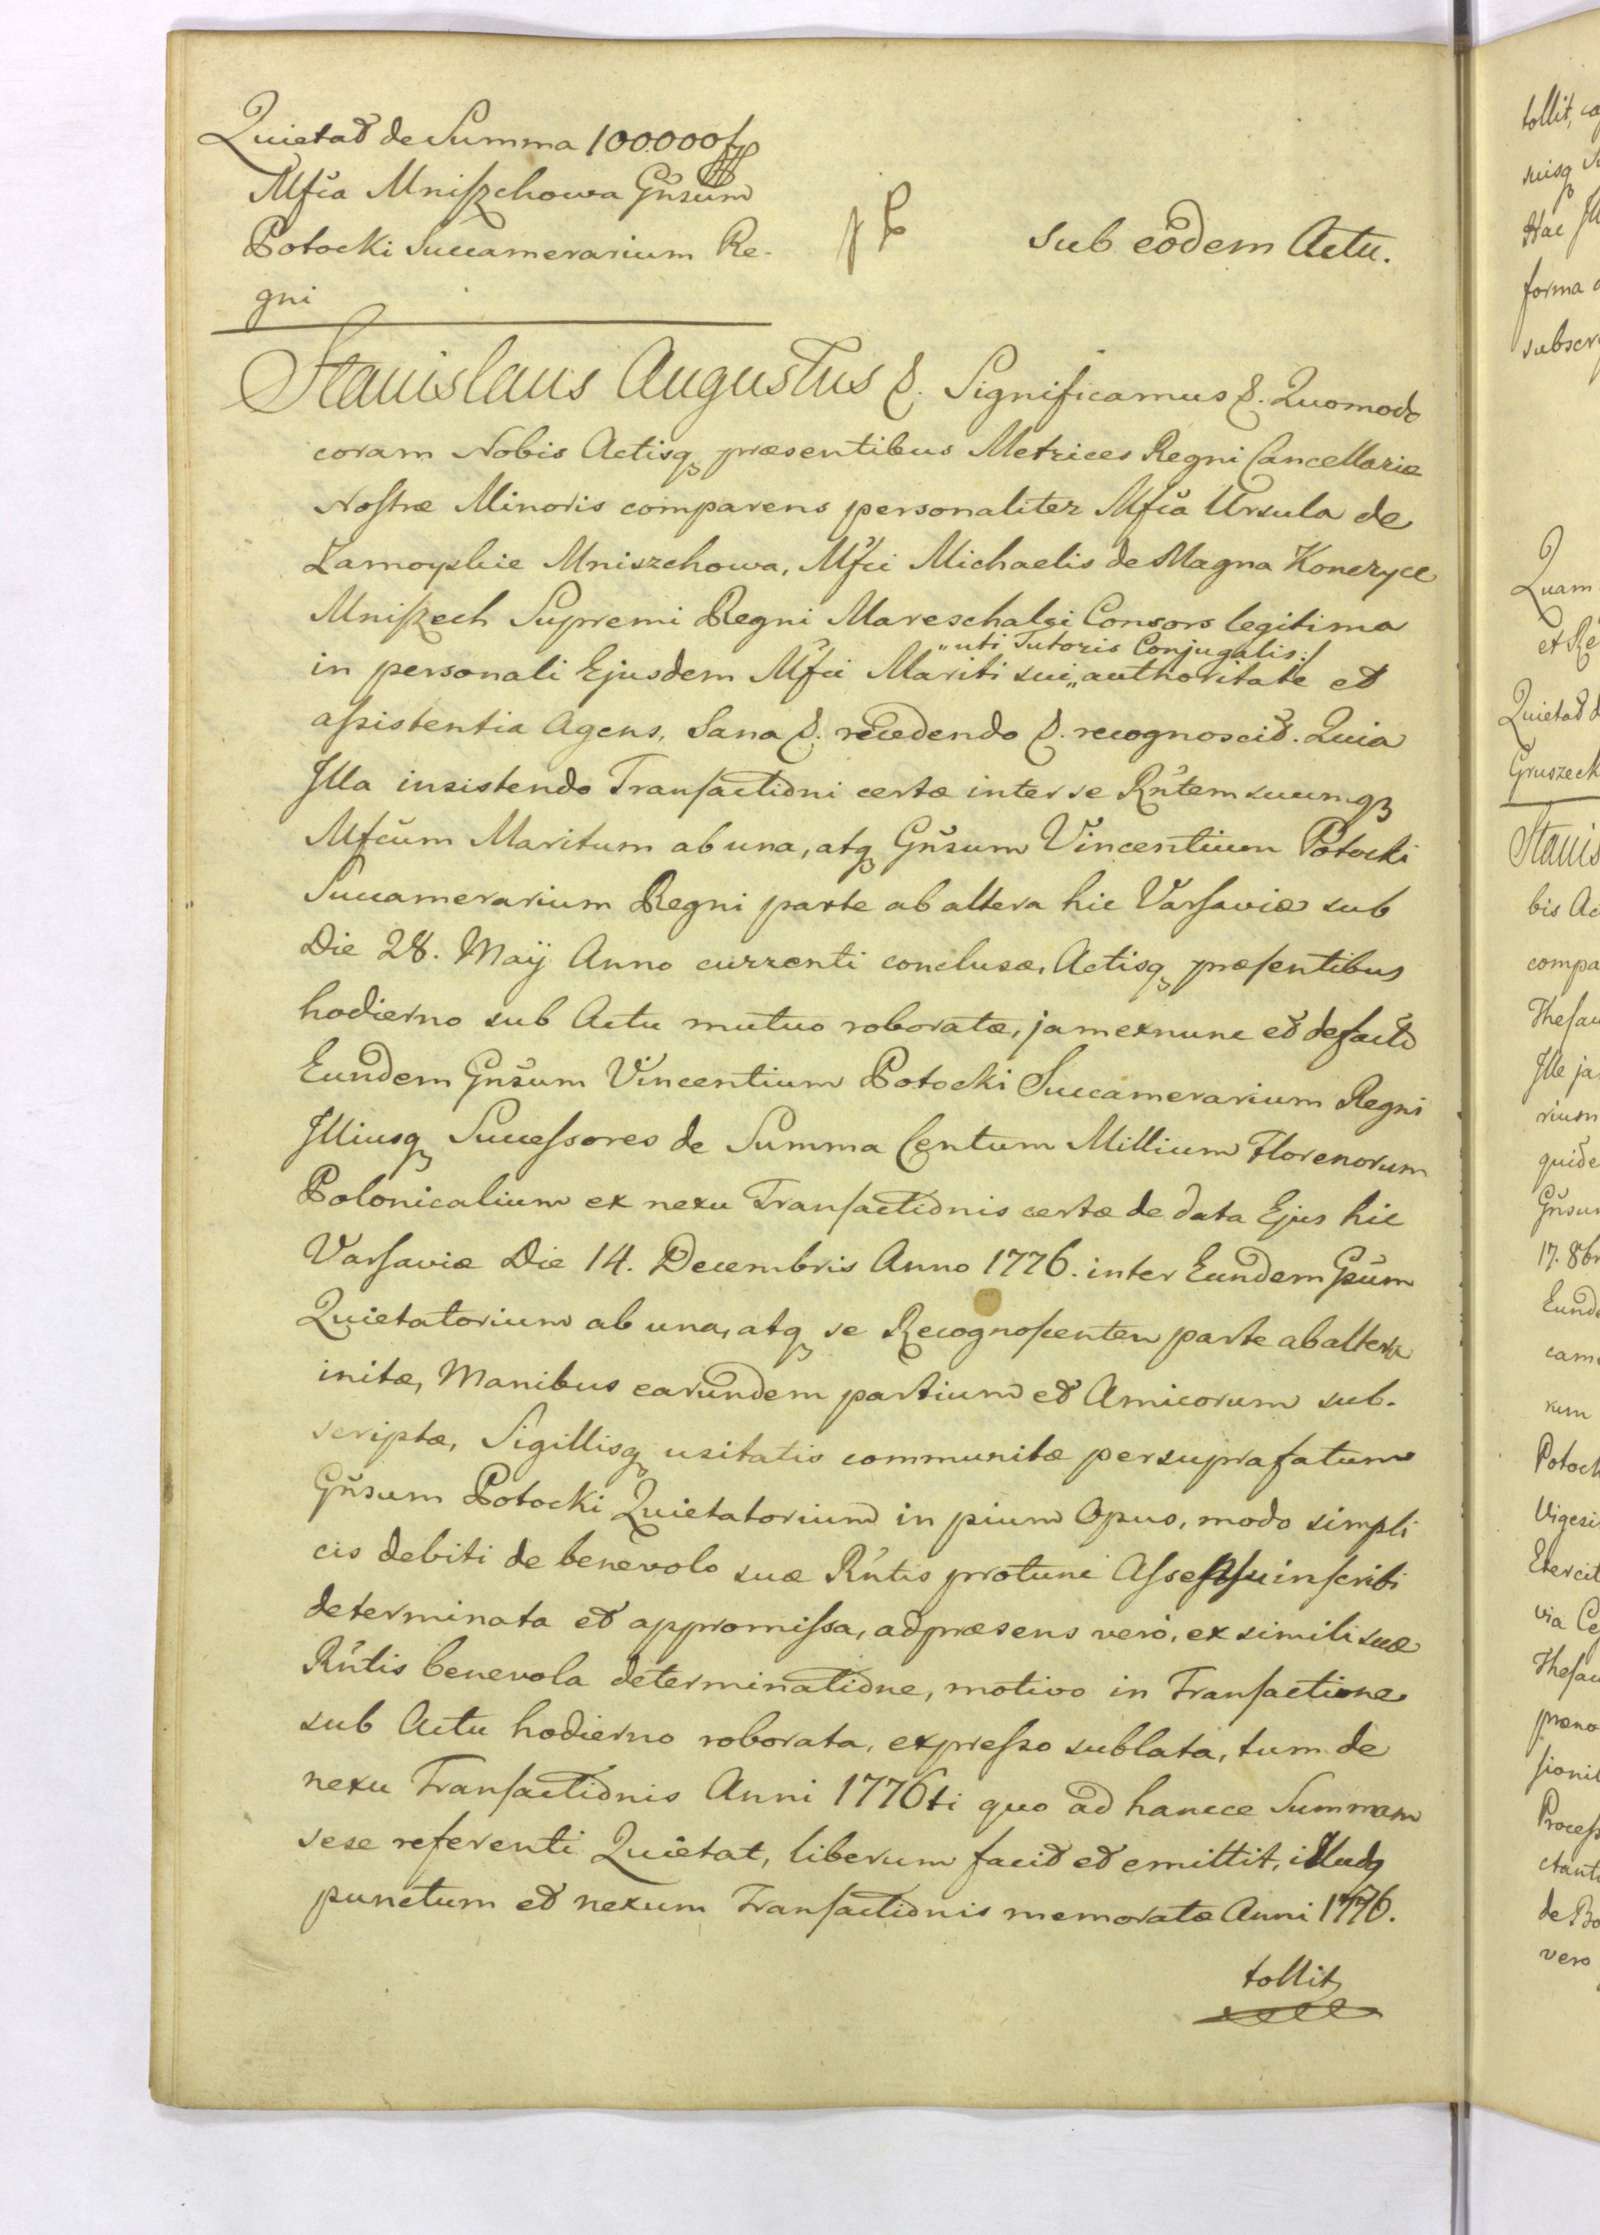 Quietat de Summa 100.000 f
Mfca Mniszchowa Gnsum
Potocki Succamerarium Re-
gni
sub eodem Actu.
Stanislaus Augustus &. Significamus &. Quomodo
coram Nobis Actisq præsentibus Metrices Regni Cancellariæ
Nostræ Minoris comparens personaliter Mfca Ursula de
Zamoyskie Mniszchowa, Mfci Michaelis de Magna Konczyce
Mniszech Supremi Regni Mareschalci Consors legitima
„uti Tutoris Conjugalis:/
in personali Ejusdem Mfci Mariti sui„ authoritate et
assistentia Agens, Sana &. recedendo &. recognoscit. Quia
Illa insistendo Transactioni certæ inter se Rntem suumq
Mfcum Maritum ab una, atq Gnsum Vincentium Potocki
Succamerarium Regni parte ab altera hic Varsaviæ sub
Die 28. Maij Anno currenti conclusæ, Actisq præsentibus
hodierno sub Actu mutuo roboratæ, jam exnunc et defacto
Eundem Gnsum Vincentium Potocki Succamerarium Regni
Illiusq Successores de Summa Centum Millium Florenorum
Polonicalium ex nexu Transactionis certæ de data Ejus hic
Varsaviæ Die 14. Decembris Anno 1776. inter Eundem Gsum
Quietatorium ab una, atq se Recognoscentem parte ab altera
initæ, Manibus earundem partium et Amicorum sub-
scriptæ, Sigillisq usitatis communitæ per suprafatum
Gnsum Potocki Quietatorium in pium Opus, modo simpli
cis debiti de benevolo suæ Rntis protunc Assensu inscribi
determinata et appromissa, adpræsens vero, ex simili suæ
Rntis benevola determinatione, motivo in Transactione
sub Actu hodierno roborata, expresso sublata, tum de
nexu Transactionis Anni 1776ti quo ad hancce Summam
sese referenti Quietat, liberum facit et emittit, illudq
punctum et nexum Transactionis memoratæ Anni 1776.
tollit